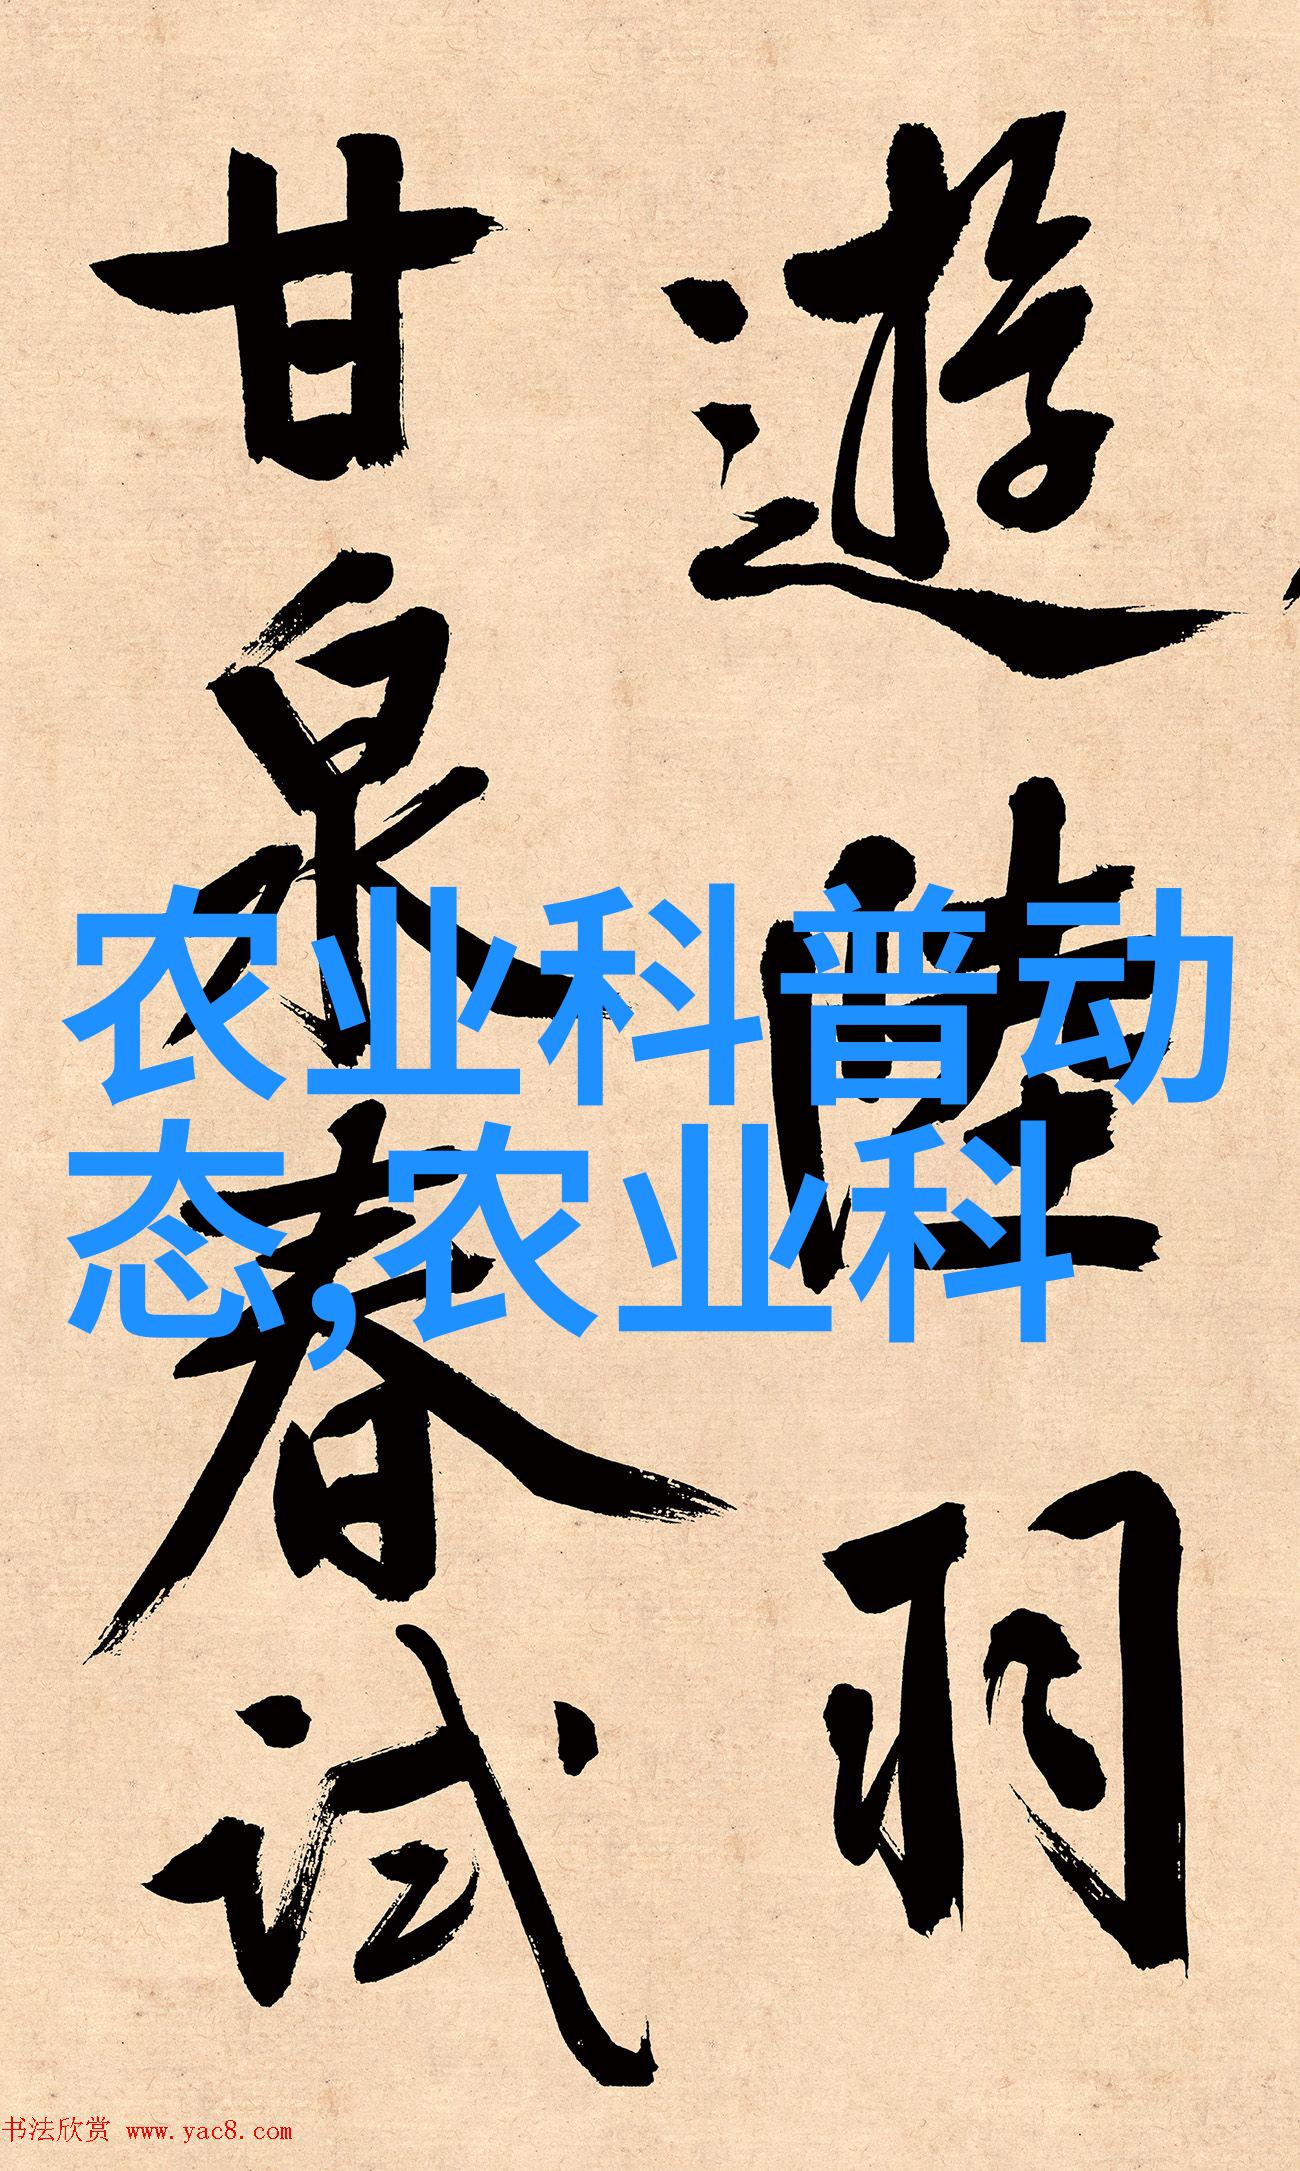 遊陸羽
甘泉春試
农业科普动
态,农业科
书法欣赏 www.yac8.com